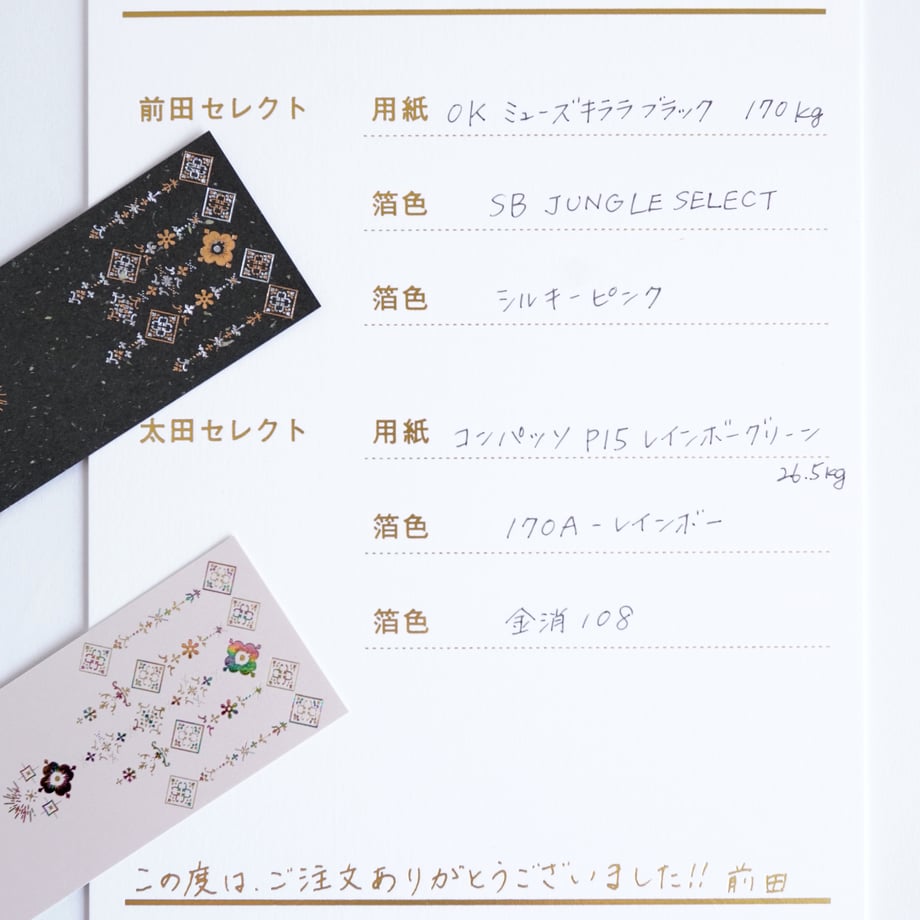 前田セレクト 用紙 OK ミューズキララブラック 170kg
箔色 SB JUNGLE SELECT
箔色 シルキーピンク
太田セレクト 用紙 コンパッソ P15 レインボーグリーン
26.5kg
箔色 170A-レインボー
箔色 金消108
この度は、ご注文ありがとうございました!! 前田